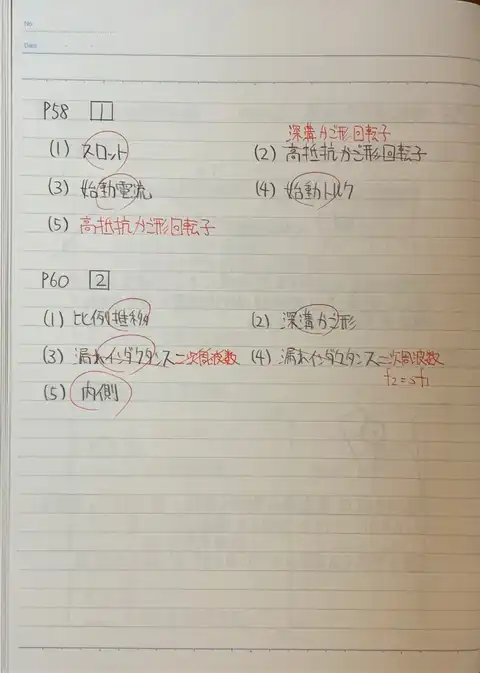 No.
Date
P58 1
深溝かご形回転子
(1) スロット (2) 高抵抗かご形回転子
(3) 始動電流 (4) 始動トルク
(5) 高抵抗かご形回転子
P60 2
(1) 比例推移 (2) 深溝かご形
(3) 漏れインダクタンス二次周波数 (4) 漏れインダクタンス二次周波数
f2=sf1
(5) 内側